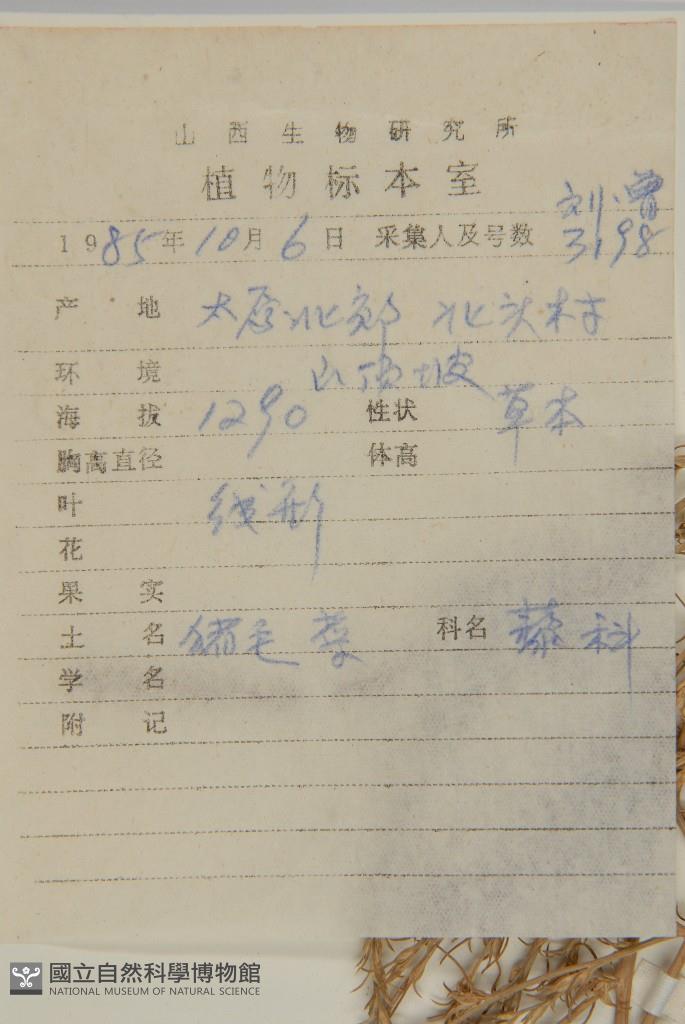 山西生物研究所
植物标本室
刘 曾
1985年10月6日 采集人及号数 3198
产地 太原北郊 北头村
环境 山坡
海拔 1290 性状 草本
胸高直径 体高
叶 线形
花
果实
土名 猪毛菜 科名 藜科
学名
附记
國立自然科學博物館
NATIONAL MUSEUM OF NATURAL SCIENCE